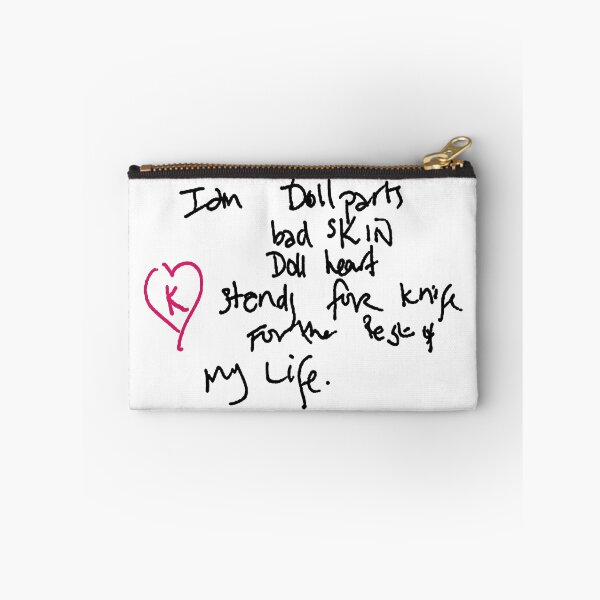 I am Doll parts
bad SKIN
Doll heart
K stands for knife
For the Rest of
My Life.